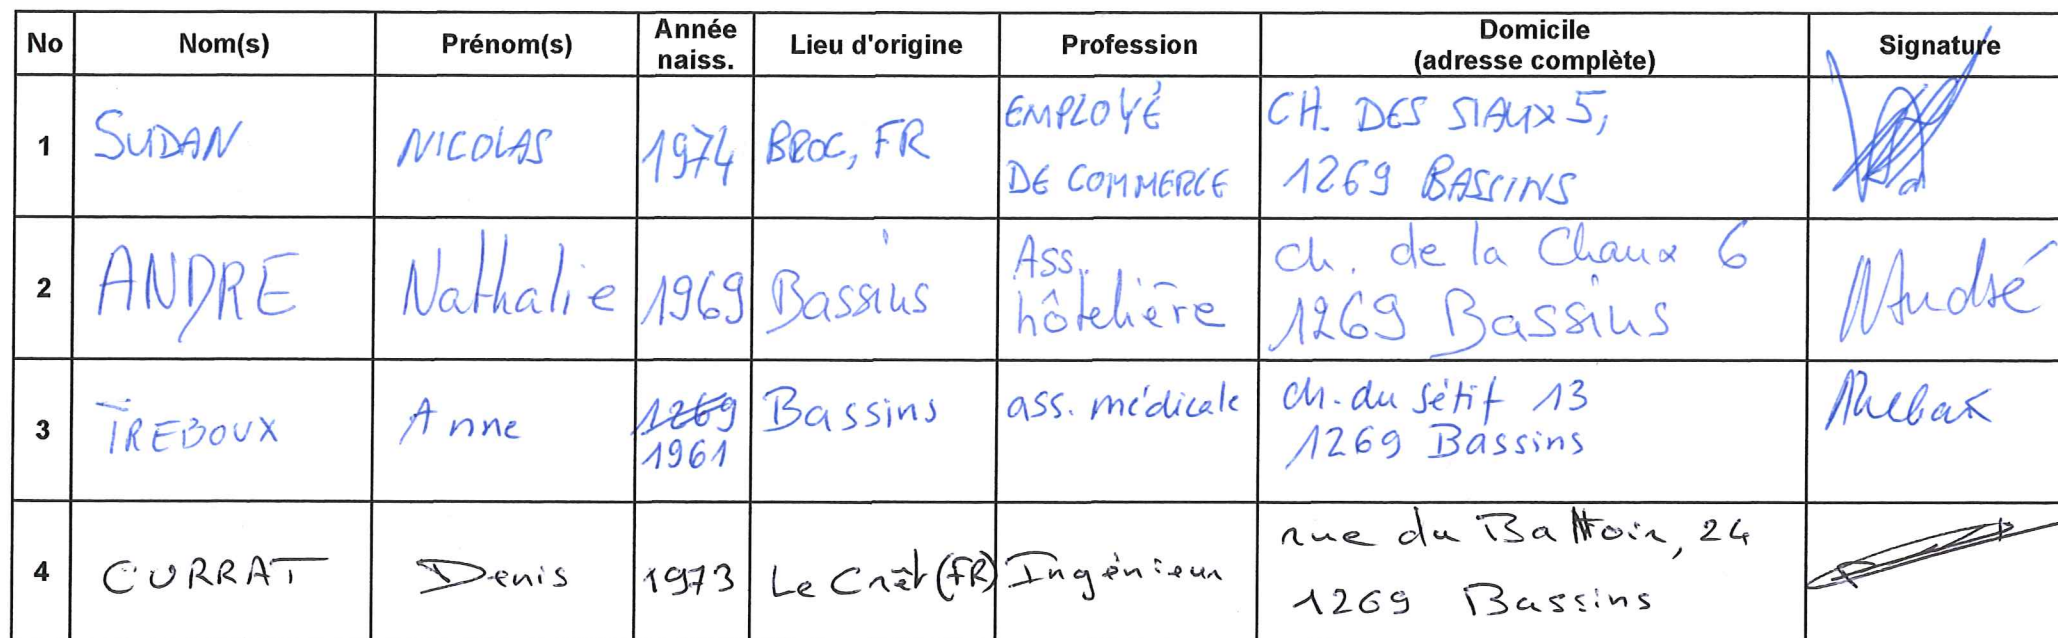 No Nom(s) Prénom(s) Année naiss. Lieu d'origine Profession Domicile (adresse complète) Signature
1 SUDAN NICOLAS 1974 BROC, FR EMPLOYÉ DE COMMERCE CH. DES SIAUX 5, 1269 BASSINS
2 ANDRE Nathalie 1969 Bassins Ass. hôtelière ch. de la Chaux 6 1269 Bassins NAndré
3 TREBOUX Anne 1269 1961 Bassins ass. médicale ch. du Sétif 13 1269 Bassins
4 CURRAT Denis 1973 Le Crêt (FR) Ingénieur rue du Battoir, 24 1269 Bassins